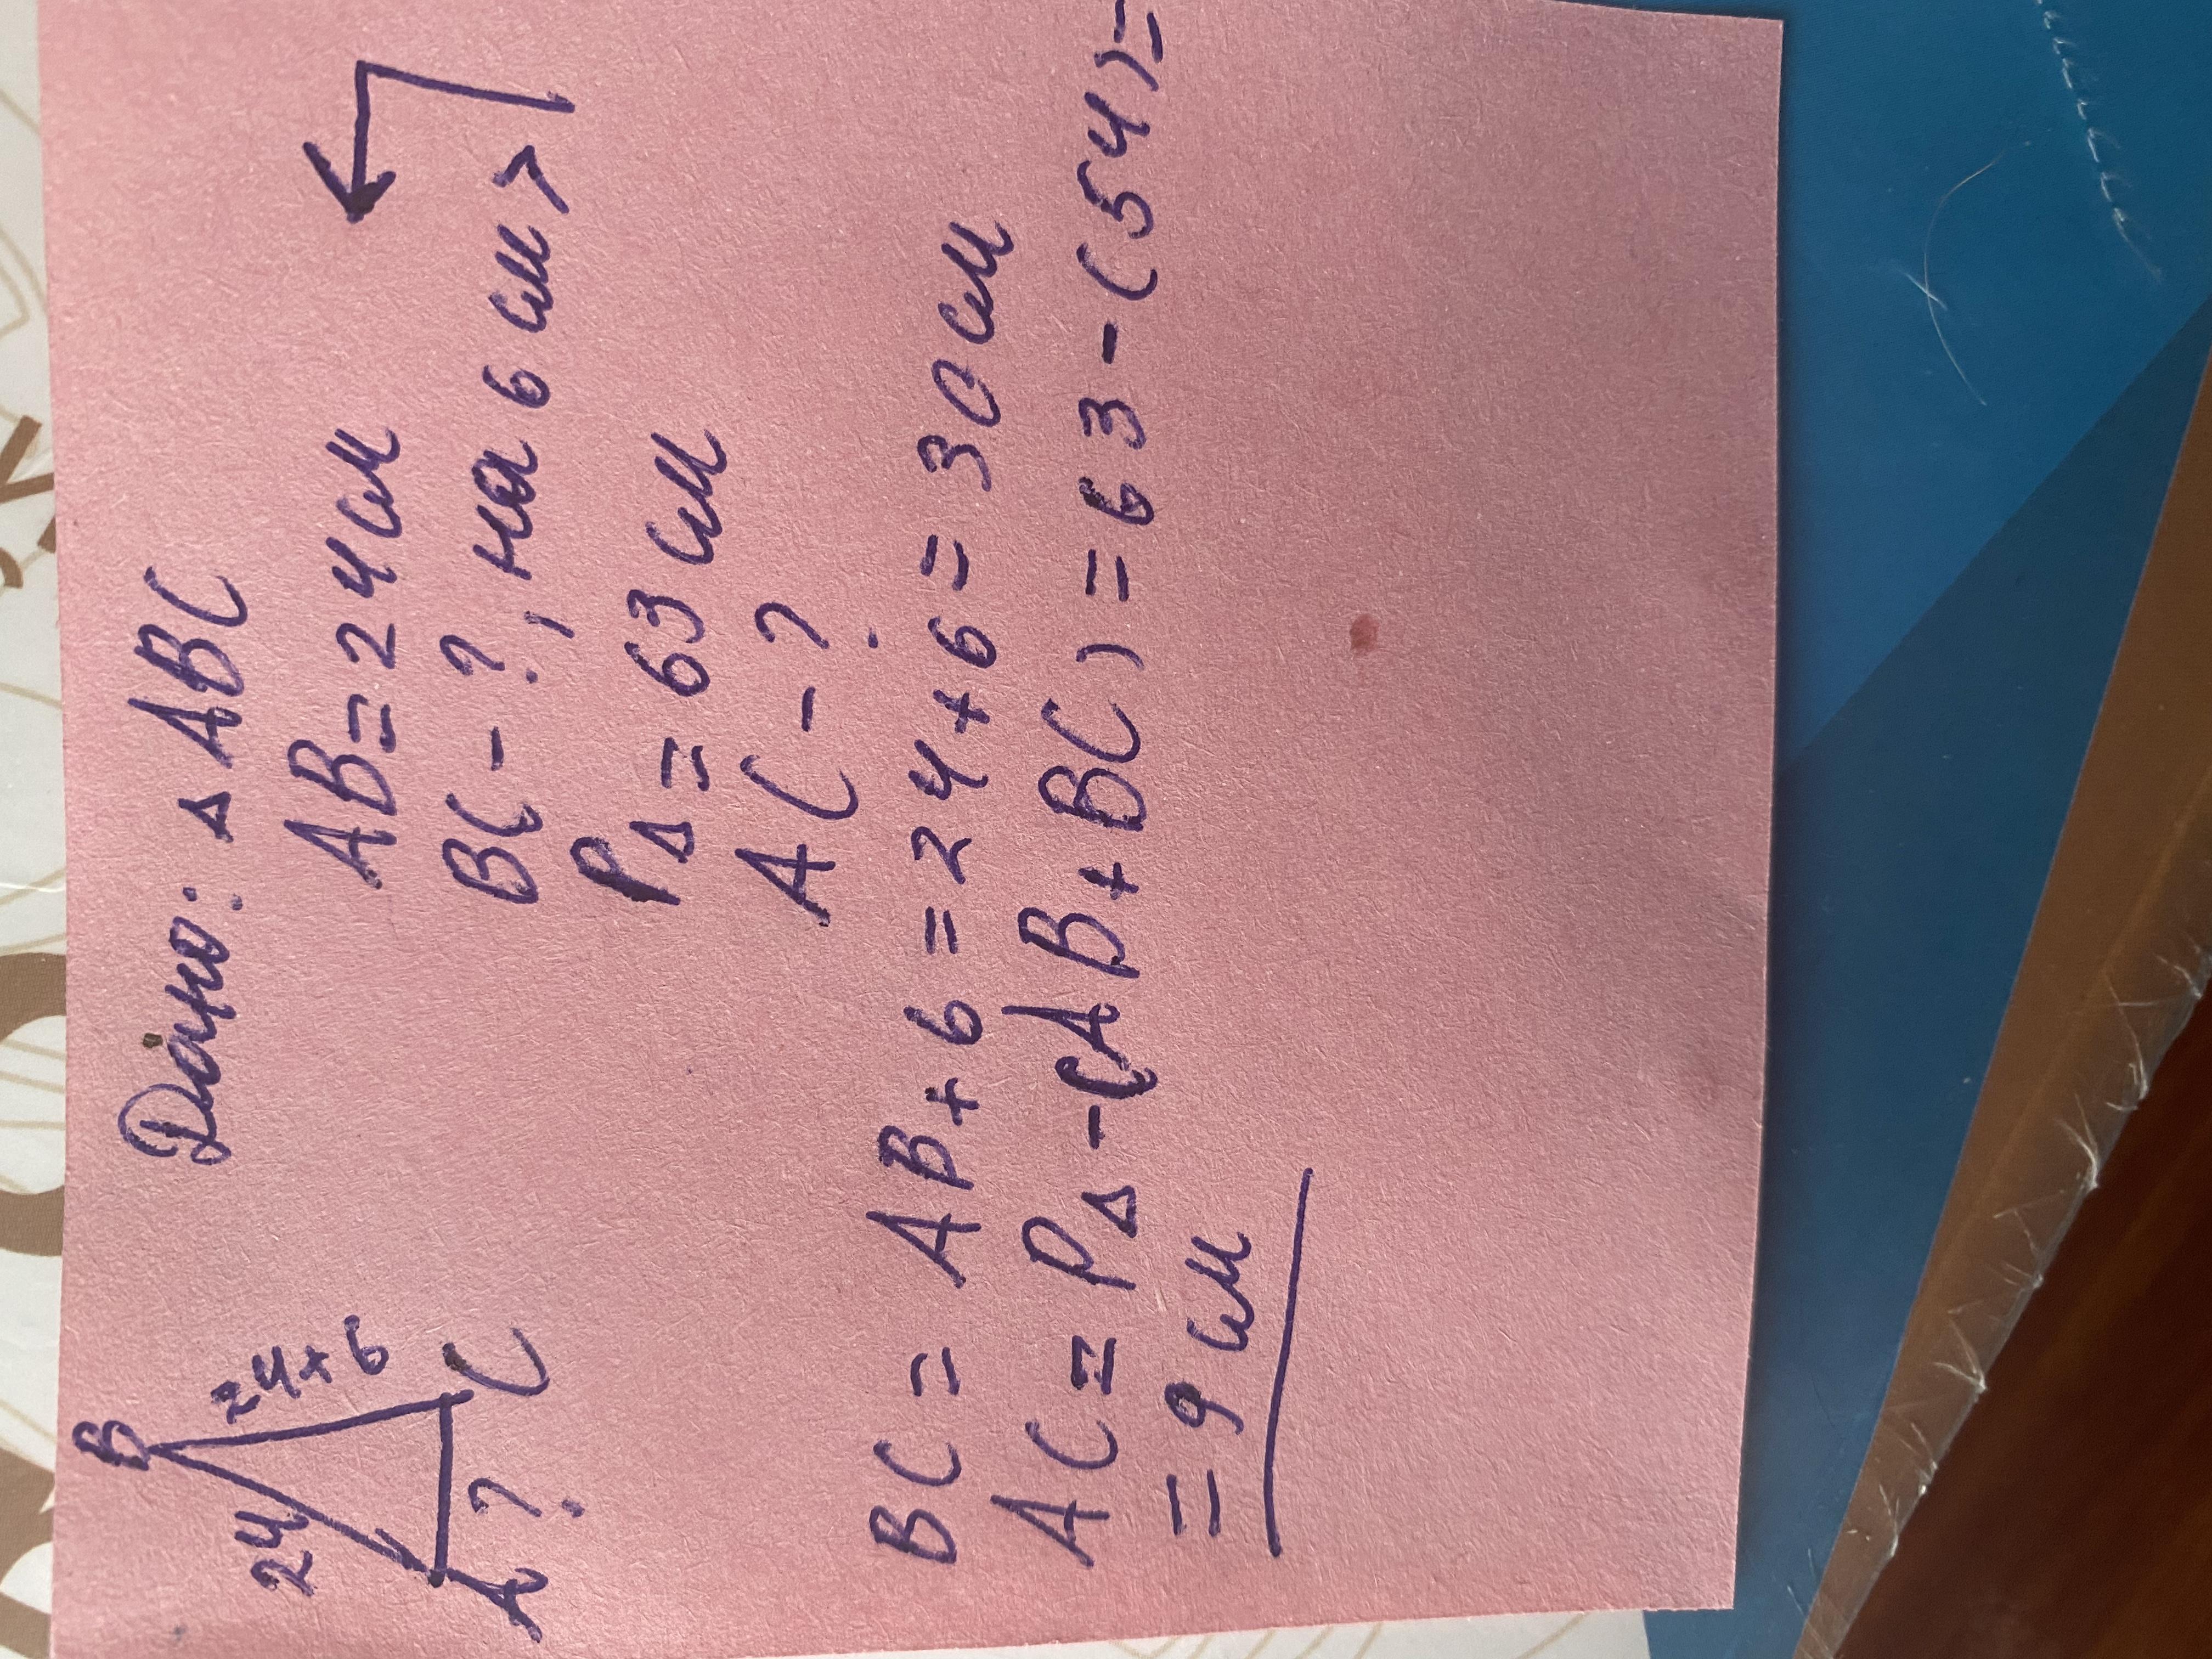 Дано: △ ABC
AB = 24 см
BC - ?, на 6 см >
P△ = 63 см
AC - ?
B
24
24+6
A
?
C
BC = AB + 6 = 24 + 6 = 30 см
AC = P△ - (AB + BC) = 63 - (54) =
= 9 см